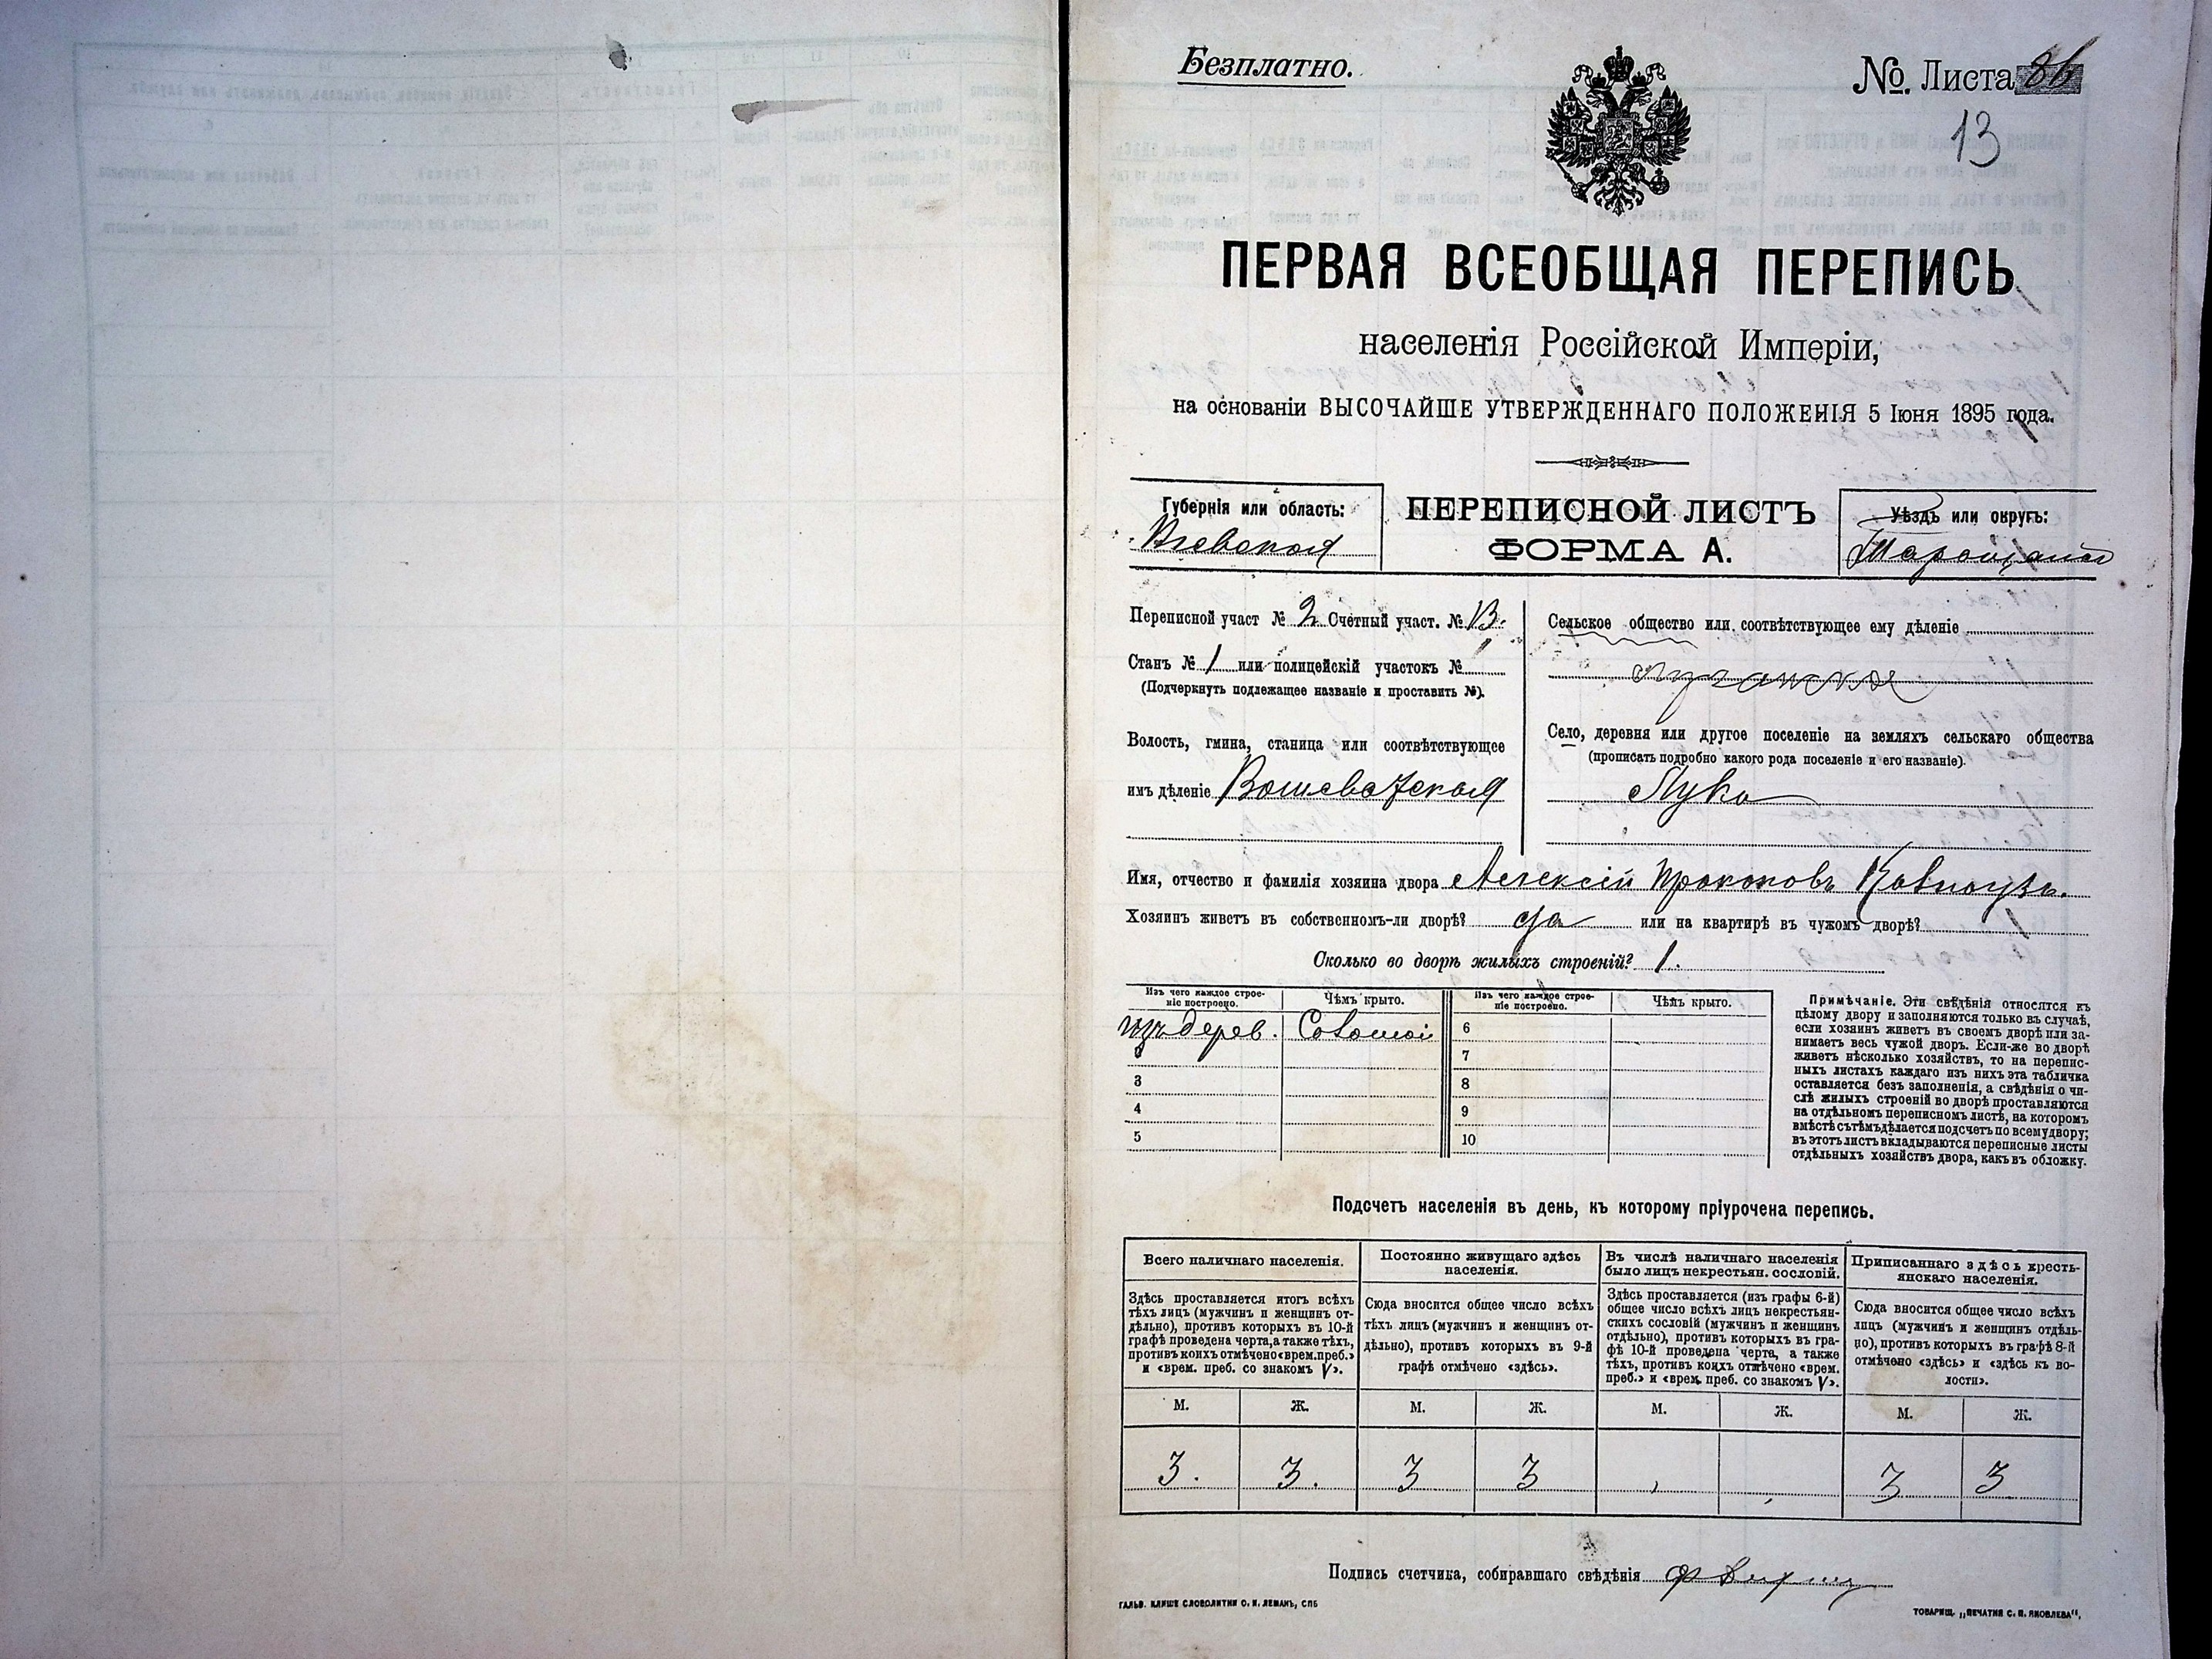 Безплатно.
№. Листа 86
13
ПЕРВАЯ ВСЕОБЩАЯ ПЕРЕПИСЬ
населенія Россійской Имперіи,
на основаніи ВЫСОЧАЙШЕ УТВЕРЖДЕННАГО ПОЛОЖЕНІЯ 5 Іюня 1895 года.
Губернія или область:
Кіевская
ПЕРЕПИСНОЙ ЛИСТЪ
ФОРМА А.
Уѣздъ или округъ:
Таращанс
Переписной участ № 2 Счетный участ. № 13.
Станъ № 1 или полицейскій участокъ №
(Подчеркнуть подлежащее названіе и проставить №).
Волость, гмина, станица или соотвѣтствующее
имъ дѣленіе
Сельское общество или соотвѣтствующее ему дѣленіе
Лучанское
Село, деревня или другое поселеніе на земляхъ сельскаго общества
(прописать подробно какого рода поселеніе и его названіе).
Лука
Имя, отчество и фамилія хозяина двора Алексій Прокоповъ Ковпоузъ.
Хозяинъ живетъ въ собственномъ-ли дворѣ? да или на квартирѣ въ чужомъ дворѣ?
Сколько во дворѣ жилыхъ строеній? 1.
Изъ чего каждое строе-
ніе построено.
Чѣмъ крыто.
Изъ чего каждое строе-
ніе построено.
Чѣмъ крыто.
изъ дерев. Соломой 6
7
3 8
4 9
5 10
Примѣчаніе. Эти свѣдѣнія относятся къ
цѣлому двору и заполняются только въ случаѣ,
если хозяинъ живетъ въ своемъ дворѣ или за-
нимаетъ весь чужой дворъ. Если-же во дворѣ
живетъ нѣсколько хозяйствъ, то на перепис-
ныхъ листахъ каждаго изъ нихъ эта табличка
оставляется безъ заполненія, а свѣдѣнія о чи-
слѣ жилыхъ строеній во дворѣ проставляются
на отдѣльномъ переписномъ листѣ, на которомъ
вмѣстѣ съ тѣмъ дѣлается подсчетъ по всему двору;
въ этотъ листъ вкладываются переписные листы
отдѣльныхъ хозяйствъ двора, какъ въ обложку.
Подсчетъ населенія въ день, къ которому пріурочена перепись.
Всего наличнаго населенія.
Здѣсь проставляется итогъ всѣхъ
тѣхъ лицъ (мужчинъ и женщинъ от-
дѣльно), противъ которыхъ въ 10-й
графѣ проведена черта, а также тѣхъ,
противъ коихъ отмѣчено «врем. преб.»
и «врем. преб. со знакомъ V».
Постоянно живущаго здѣсь
населенія.
Сюда вносится общее число всѣхъ
тѣхъ лицъ (мужчинъ и женщинъ от-
дѣльно), противъ которыхъ въ 9-й
графѣ отмѣчено «здѣсь».
Въ числѣ наличнаго населенія
было лицъ некрестьян. сословій.
Здѣсь проставляется (изъ графы 6-й)
общее число всѣхъ лицъ некрестьян-
скихъ сословій (мужчинъ и женщинъ
отдѣльно), противъ которыхъ въ гра-
фѣ 10-й проведена черта, а также
тѣхъ, противъ коихъ отмѣчено «врем.
преб.» и «врем. преб. со знакомъ V».
Приписаннаго здѣсь кресть-
янскаго населенія.
Сюда вносится общее число всѣхъ
лицъ (мужчинъ и женщинъ отдѣль-
но), противъ которыхъ въ графѣ 8-й
отмѣчено «здѣсь» и «здѣсь къ во-
лости».
М. Ж. М. Ж. М. Ж. М. Ж.
3. 3. 3 3 3 3
Подпись счетчика, собиравшаго свѣдѣнія
ГАЛЬВ. КЛИШЕ СЛОВОЛИТНИ О. И. ЛЕМАНЪ, СПБ
ТОВАРИЩ. „ПЕЧАТНЯ С. П. ЯКОВЛЕВА“,